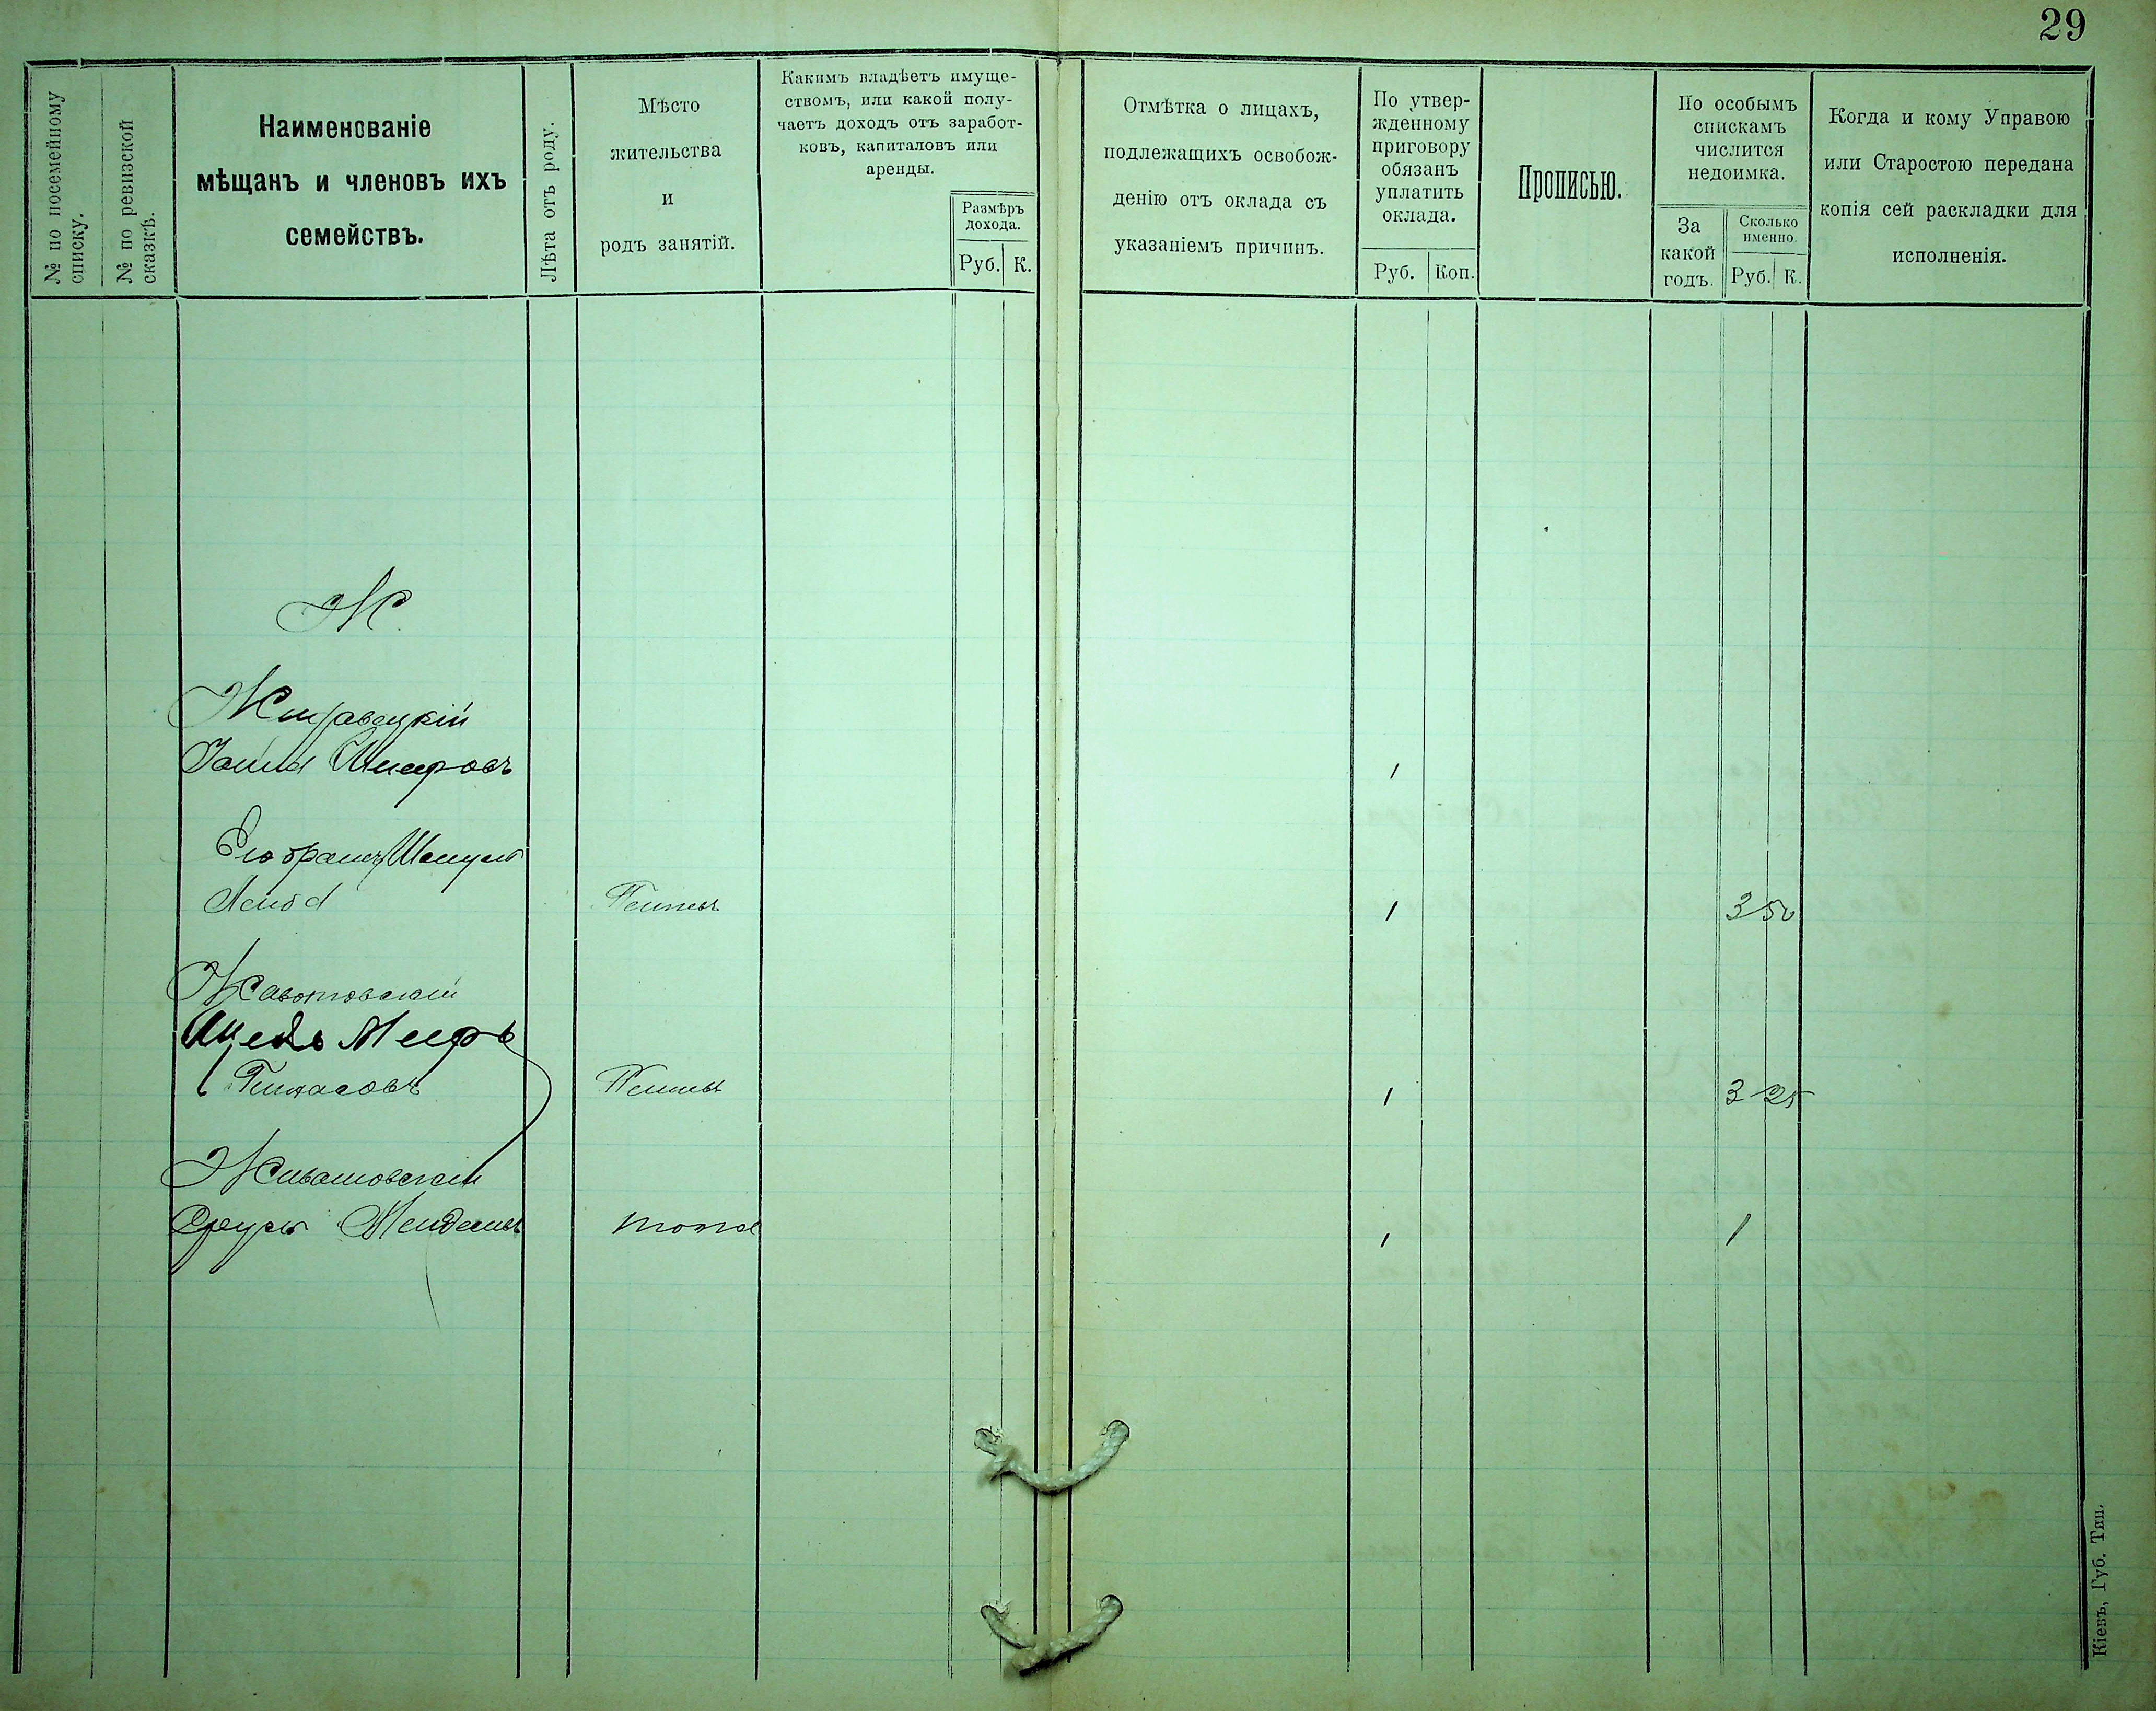 29
№ по посемейному
списку.
№ по ревизской
сказкѣ.
Наименованіе
мѣщанъ и членовъ ихъ
семействъ.
Лѣта отъ роду.
Мѣсто
жительства
и
родъ занятій.
Какимъ владѣетъ имуще-
ствомъ, или какой полу-
чаетъ доходъ отъ заработ-
ковъ, капиталовъ или
аренды.
Размѣръ
дохода.
Руб. К.
Отмѣтка о лицахъ,
подлежащихъ освобож-
денію отъ оклада съ
указаніемъ причинъ.
По утвер-
жденному
приговору
обязанъ
уплатить
оклада.
Руб. Коп.
Прописью.
По особымъ
спискамъ
числится
недоимка.
За
какой
годъ.
Сколько
именно.
Руб. К.
Когда и кому Управою
или Старостою передана
копія сей раскладки для
исполненія.
Ж.
1
Его братъ
1 3 50
Мееръ
1 3 25
Животовскій
Менделев 1 1
Кіевъ, Губ. Тип.